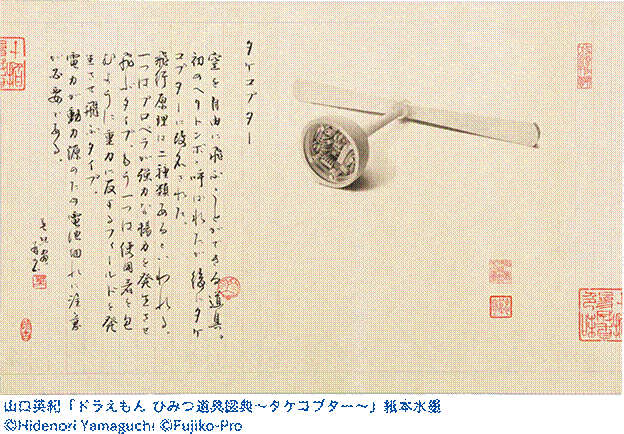 タケコプター
空を自由に飛ぶことができる道具。
初めヘリトンボと呼ばれたが後にタケ
コプターに改名された。
飛行原理は二種類あるといわれる。
一つはプロペラが強力な揚力を発生させ
飛ぶタイプ。もう一つは使用者を包
むように重力に反するフィールドを発
生させ飛ぶタイプ。
電力が動力源のため電池切れに注意
が必要である。
山口英紀「ドラえもん ひみつ道具図典~タケコプター~」紙本水墨
©Hidenori Yamaguchi ©Fujiko-Pro